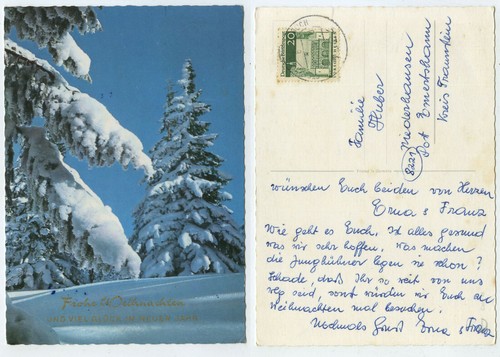 Frohe Weihnachten
UND VIEL GLÜCK IM NEUEN JAHR
20
Familie
Huber
8221 Niederhausen
Post Emertsham
Kreis Traunstein
wünschen Euch beiden von Herzen
Erna & Franz
Wie geht es Euch. Ist alles gesund
was wir sehr hoffen. Was machen
die Junghühner legen sie schon?
Schade, daß Ihr so weit von uns
weg seid, sonst würden wir Euch an
Weihnachten mal besuchen.
Nochmals Gruß Erna & Franz